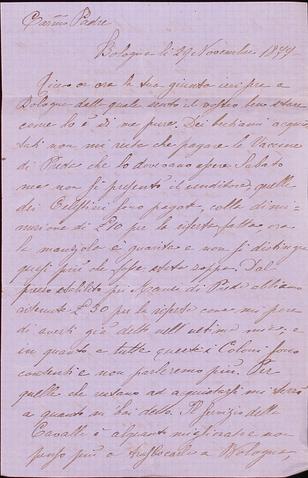 Carmo Padre
Bologna li 29 Novembre 1877
Ricevo ora la tua giunta ieri sera a
Bologna dalla quale sento il vostro bene stare
come lo è di me pure. Dei bestiami acqui
stati non mi resta che pagare le Vaccine
di Prede che lo dovevano essere Sabato
ma non si presentò il venditore, quelle
dei Celestini sono pagate, colla dimi
nuzione di £10 per la riferta fatta ora
la manzola è guarita e non si distingue
quasi più che fosse stata zoppa. Dal
prezzo stabilito pei Manzi di Prede abbiamo
ottenuto £ 30 per la riferta come mi pare
di averti già detto nell'ultima mia, e
in quanto a tutte questi i Coloni sono
contenti e non parleremo più. Per
quelle che restano ad acquistarsi mi terrò
a quanto in hai detto. Il servizio delle
Cavalle è alquanto migliorato e non
penso più a traslocarle a Bologna